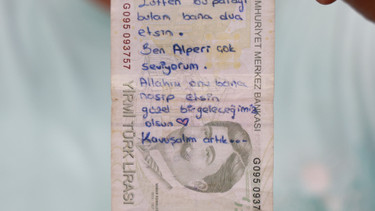 Lütfen bu parayı
bulan bana dua
etsin.
Ben Alperi çok
seviyorum.
Allahım onu bana
nasip etsin
güzel bir geleceğimiz
olsun ♡
Kavuşalım artık...
G095 093757
YİRMİ TÜRK LİRASI
MHURİYET MERKEZ BANKASI
G095 0937